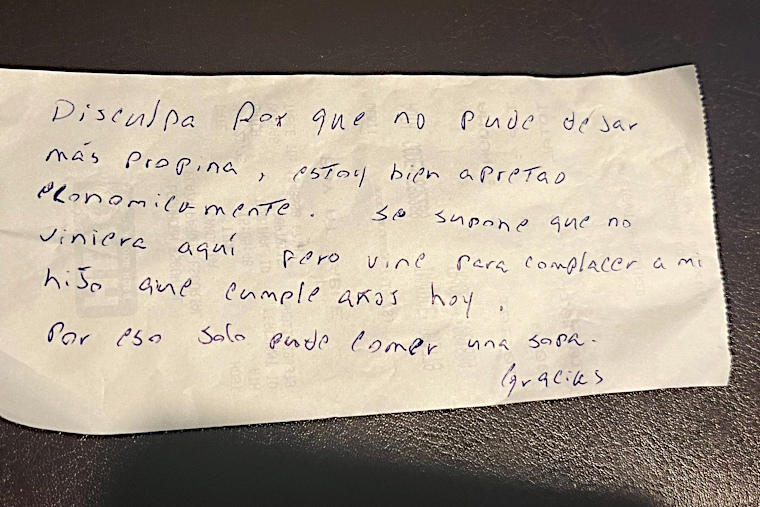 Disculpa Por que no pude dejar
más propina, estoy bien apretao
economicamente. Se supone que no
viniera aquí pero vine para complacer a mi
hijo que cumple años hoy.
Por eso solo pude comer una sopa.
Gracias